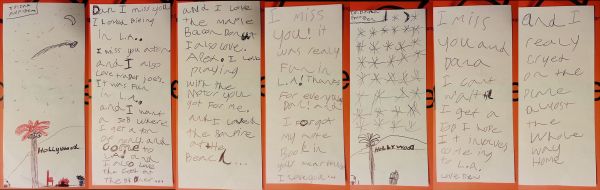 HOLLYWOOD
Dan I miss you
I Loved bieing
in L.A..
I miss you aton
and I also
Love trader joes.
It was Fun
in L.A..
and I want
a Job where
I get a ton
of
to
L.A. and
I also
Love the
and I Love
the maple
Bacon Donut
I also Love.
Alex. I Love
praying
with the
you
got For me,
and I Loved
the Bonfire
at the
Beach...
I miss
you! it
was realy
Fun in
L.A! Thanks
For everything
Dan! and
I Forgot
my note
Book in
your
I Love you...
HOLLYWOOD
I miss
you and
Dana
I cant
wait
I get a
Job I hope
it involves
coming
to L.A.
and I
realy
cryed
on the
plane
almost
the
whole
way
Home